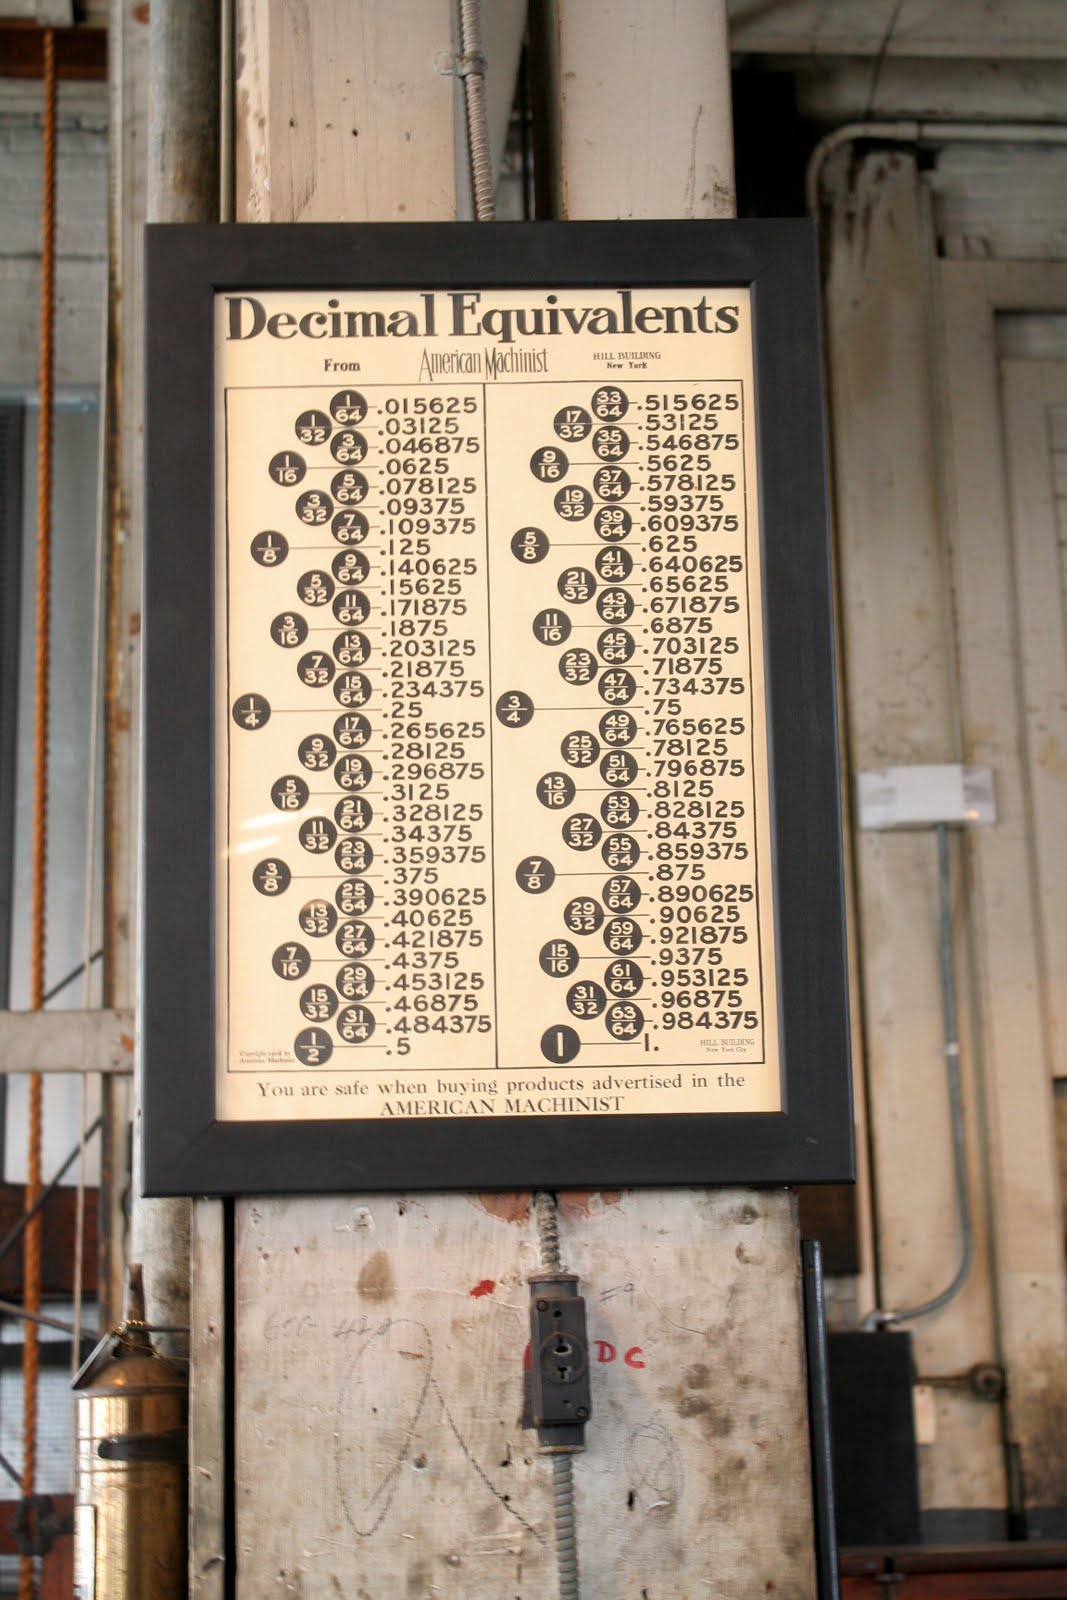 Decimal Equivalents
From American Machinist HILL BUILDING
New York
1/64 .015625
1/32 .03125
3/64 .046875
1/16 .0625
5/64 .078125
3/32 .09375
7/64 .109375
1/8 .125
9/64 .140625
5/32 .15625
11/64 .171875
3/16 .1875
13/64 .203125
7/32 .21875
15/64 .234375
1/4 .25
17/64 .265625
9/32 .28125
19/64 .296875
5/16 .3125
21/64 .328125
11/32 .34375
23/64 .359375
3/8 .375
25/64 .390625
13/32 .40625
27/64 .421875
7/16 .4375
29/64 .453125
15/32 .46875
31/64 .484375
1/2 .5
Copyright by
American Machinist
33/64 .515625
17/32 .53125
35/64 .546875
9/16 .5625
37/64 .578125
19/32 .59375
39/64 .609375
5/8 .625
41/64 .640625
21/32 .65625
43/64 .671875
11/16 .6875
45/64 .703125
23/32 .71875
47/64 .734375
3/4 .75
49/64 .765625
25/32 .78125
51/64 .796875
13/16 .8125
53/64 .828125
27/32 .84375
55/64 .859375
7/8 .875
57/64 .890625
29/32 .90625
59/64 .921875
15/16 .9375
61/64 .953125
31/32 .96875
63/64 .984375
1 1.
HILL BUILDING
New York City
You are safe when buying products advertised in the
AMERICAN MACHINIST
#9
DC